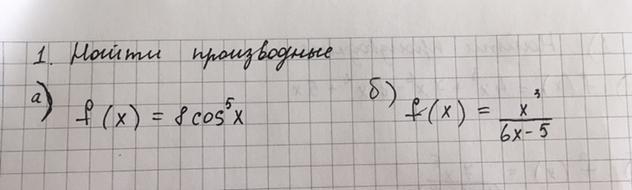 1. Найти производные
а) f(x) = 8cos⁵x
б) f(x) = x³/(6x-5)